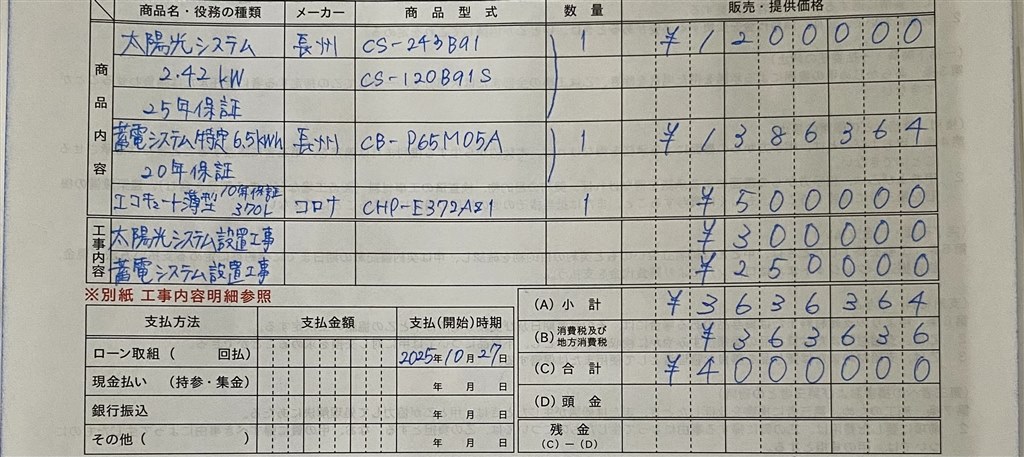 商品名・役務の種類 メーカー 商品型式 数量 販売・提供価格
商品内容
太陽光システム 長州 CS-243B91 1 ¥1200000
2.42kW CS-120B91S
25年保証
蓄電システム特定6.5kWh 長州 CB-P65M05A 1 ¥1386364
20年保証
エコキュート薄型 10年保証 370L コロナ CHP-E372AZ1 1 ¥500000
工事内容
太陽光システム設置工事 ¥300000
蓄電システム設置工事 ¥250000
※別紙 工事内容明細参照
支払方法 支払金額 支払(開始)時期
ローン取組 ( 回払) 2025年10月27日
現金払い (持参・集金) 年 月 日
銀行振込 年 月 日
その他 ( ) 年 月 日
(A) 小計 ¥3636364
(B) 消費税及び地方消費税 ¥363636
(C) 合計 ¥4000000
(D) 頭金
残金
(C)-(D)